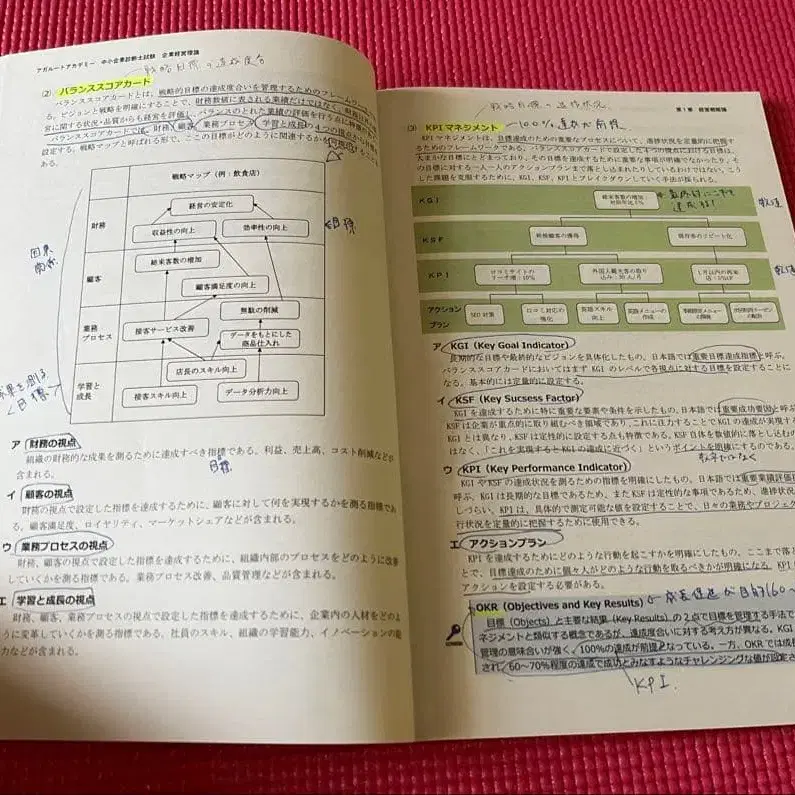 アガルートアカデミー 中小企業診断士試験 企業経営理論
戦略目標の達成度合
(2) バランススコアカード
バランススコアカードとは、戦略的目標の達成度合いを管理するためのフレームワーク
る。ビジョンと戦略を明確にすることで、財務数値に表される業績だけではなく、財務以外の
営に関する状況・品質からも経営を評価し、バランスのとれた業績の評価を行う点に特徴が
バランススコアカードでは、財務、顧客、業務プロセス、学習と成長の4つの視点から
設定する。戦略マップと呼ばれる形で、ここの目標がどのように関連するかを可視化する
ある。
戦略マップ(例:飲食店)
財務
経営の安定化
収益性の向上
効率性の向上
目標
因果
関係
顧客
総来客数の増加
顧客満足度の向上
業務
プロセス
無駄の削減
接客サービス改善
データをもとにした
商品仕入れ
学習と
成長
店長のスキル向上
接客スキル向上
データ分析力向上
果を測る
目標
ア 財務の視点
組織の財務的な成果を測るために達成すべき指標である。利益、売上高、コスト削減などが
含まれる。
目標
イ 顧客の視点
財務の視点で設定した指標を達成するために、顧客に対して何を実現するかを測る指標であ
る。顧客満足度、ロイヤリティ、マーケットシェアなどが含まれる。
ウ 業務プロセスの視点
財務、顧客の視点で設定した指標を達成するために、組織内部のプロセスをどのように改善
していくかを測る指標である。業務プロセス改善、品質管理などが含まれる。
エ 学習と成長の視点
財務、顧客、業務プロセスの視点で設定した指標を達成するために、企業内の人材をどのよ
うに変革していくかを測る指標である。社員のスキル、組織の学習能力、イノベーションの能
力などが含まれる。
戦略目標の進捗状況
第1章 経営戦略論
(3) KPIマネジメント
100%達成が前提
KPIマネジメントは、目標達成のための重要なプロセスについて、進捗状況を定量的に把握す
るためのフレームワークである。バランススコアカードで設定した4つの視点における目標は、
大まかな目標にとどまっており、その目標を達成するために重要な事項が明確でなかったり、そ
の目標に対する一人一人のアクションプランまで落とし込まれたりしているわけではない。こう
した課題を克服するために、KGI、KSF、KPIとブレイクダウンしていく手法が採られる。
KGI
総来客数の増加
KSF
新規顧客の獲得
既存客のリピート化
KPI
口コミサイトの
リーチ増:10%
外国人観光客の取り
込み:30人/月
1か月以内の再来
アクション
プラン
SEO対策
口コミ対応の
強化
英語スキル
向上
英語メニューの
作成
季節限定メニュー
の開発
次回割引クーポン
の配布
ア KGI (Key Goal Indicator)
長期的な目標や最終的なビジョンを具体化したもの。日本語では重要目標達成指標と呼ぶ。
バランススコアカードにおいてはまずKGIのレベルで各視点に対する目標を設定することに
なる。基本的には定量的に設定する。
イ KSF (Key Sucsess Factor)
KGIを達成するために特に重要な要素や条件を示したもの。日本語では重要成功要因と呼ぶ
KSFは企業が重点的に取り組むべき領域であり、これに注力することでKGIの達成が実現す
KGIとは異なり、KSFは定性的に設定する点も特徴である。KSF自体を数値的に落とし込む
はなく、「これを実現するとKGIの達成に近づく」というポイントを明確にするものである。
数字ではなく
ウ KPI (Key Performance Indicator)
KGIやKSFの達成状況を測るための指標を明確にしたもの。日本語では重要業績評価指
呼ぶ。KGIは長期的な目標であるため、またKSFは定性的な事項であるため、進捗状況
しづらい。KPIは、具体的で測定可能な値を設定することで、日々の業務やプロジェク
行状況を定量的に把握するために使用できる。
エ アクションプラン
KPIを達成するためにどのような行動を起こすかを明確にしたもの。ここまで落と
とで、目標達成のために個々人がどのような行動を取るべきかが明確になる。KPI
アクションを設定する必要がある。
OKR (Objectives and Key Results)
成長促進が目的(60~
目標 (Objects) と主要な結果 (Key Results) の2点で目標を管理する手法で
ネジメントと類似する概念であるが、達成度合いに対する考え方が異なる。KGI
管理の意味合いが強く、100%の達成が前提となっている。一方、OKRでは成長
され、60~70%程度の達成で成功とみなすようなチャレンジングな値が設定さ
KPI